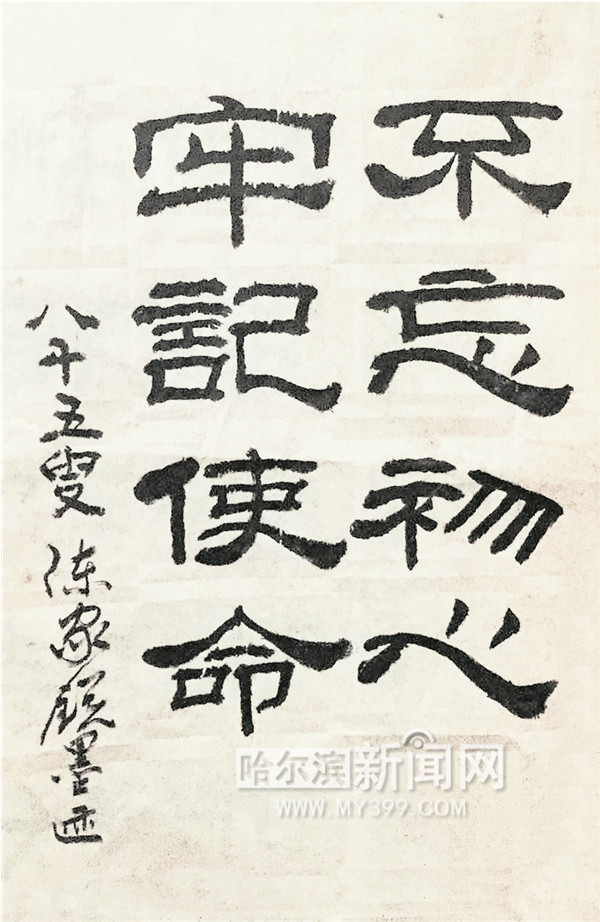 不忘初心
牢記使命
八十五叟 陈家锐墨迹
哈尔滨新闻网
WWW.MY399.COM